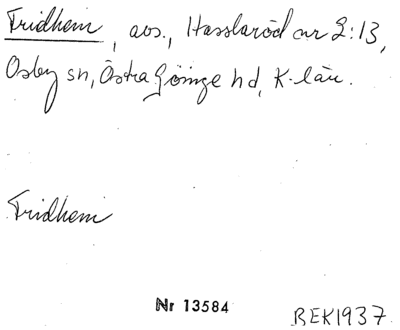 Fridhem, avs., Hasslaröd nr 2:13,
Osby sn, Östra Göinge hd, K-län.
Fridhem
Nr 13584
BEK1937